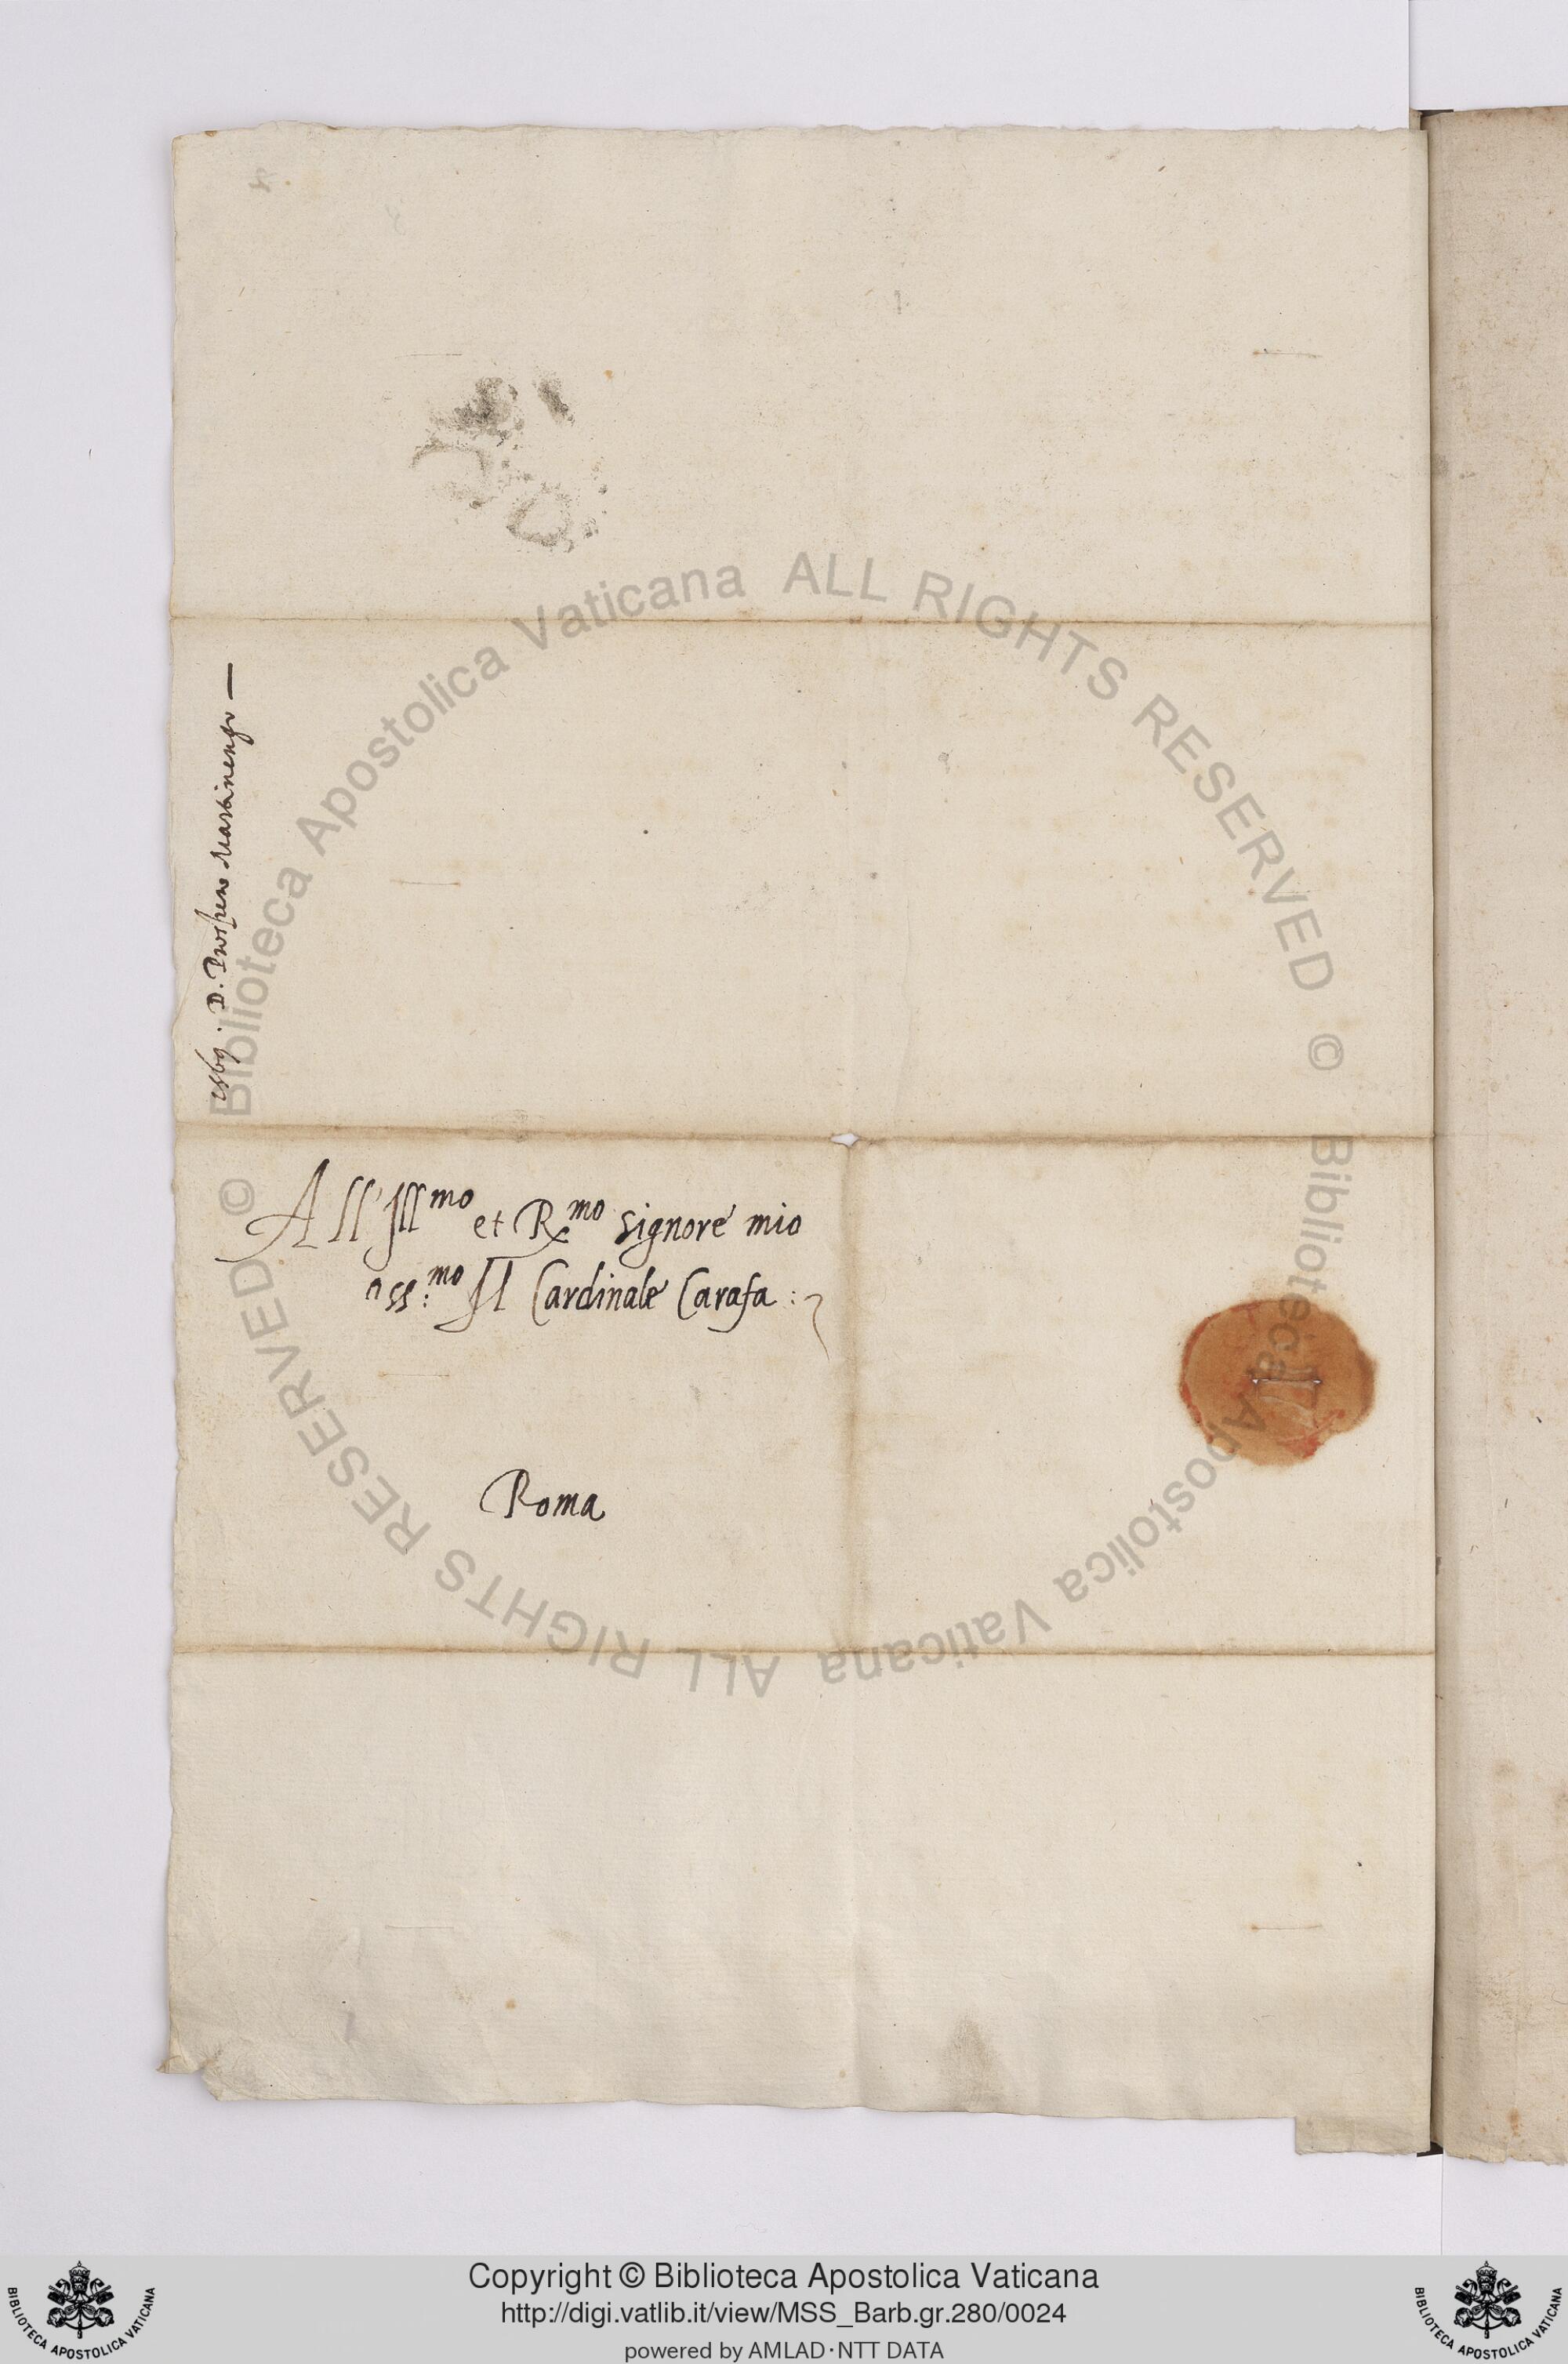 D. Prospero Martinengo —
All'Ill^mo et R^mo signore mio
oss:^mo Il Cardinale Carafa :
Roma
© Biblioteca Apostolica Vaticana ALL RIGHTS RESERVED © Biblioteca Apostolica Vaticana ALL RIGHTS RESERVED
Copyright © Biblioteca Apostolica Vaticana
http://digi.vatlib.it/view/MSS_Barb.gr.280/0024
powered by AMLAD·NTT DATA
BIBLIOTECA APOSTOLICA VATICANA
BIBLIOTECA APOSTOLICA VATICANA